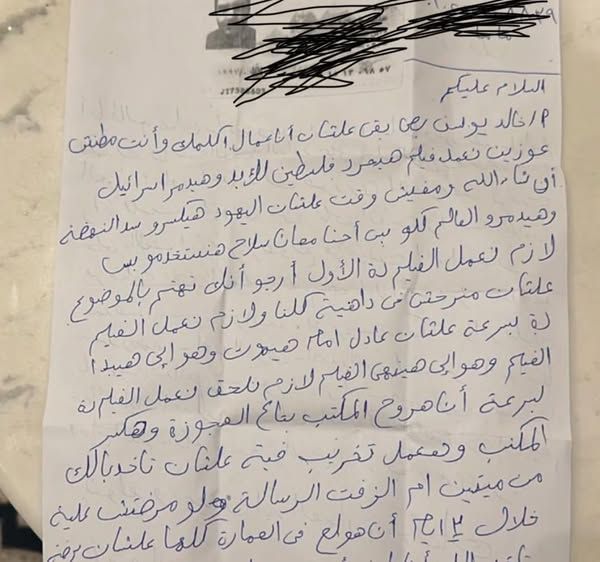 السلام عليكم
م/ خالد يوسف بص بقى علشان أنا عمال اكلمك وأنت مطنش
عوزين نعمل فيلم هيحرر فلسطين للأبد وهيدمر اسرائيل
أن شاء الله ومفيش وقت علشان اليهود هيكسرو سد النهضة
وهيدمرو العالم كلو بس أحنا معانا سلاح هنستخدمو بس
لازم نعمل الفيلم دة الأول أرجو أنك تهتم بالموضوع
علشان منرحش فى داهية كلنا ولازم نعمل الفيلم
دة بسرعة علشان عادل امام هيموت وهو إلى هيبدا
الفيلم وهو إلى هينهى الفيلم لازم نلحق نعمل الفيلم دة
بسرعة أنا هروح المكتب بتاع العجوزة وهكسر
المكتب وهعمل تخريب فيه علشان تاخد بالك
من ميتين ام الزفت الرسالة ولو مردتش عليه
خلال ٣ ايام أنا هولع فى العمارة كلها علشان